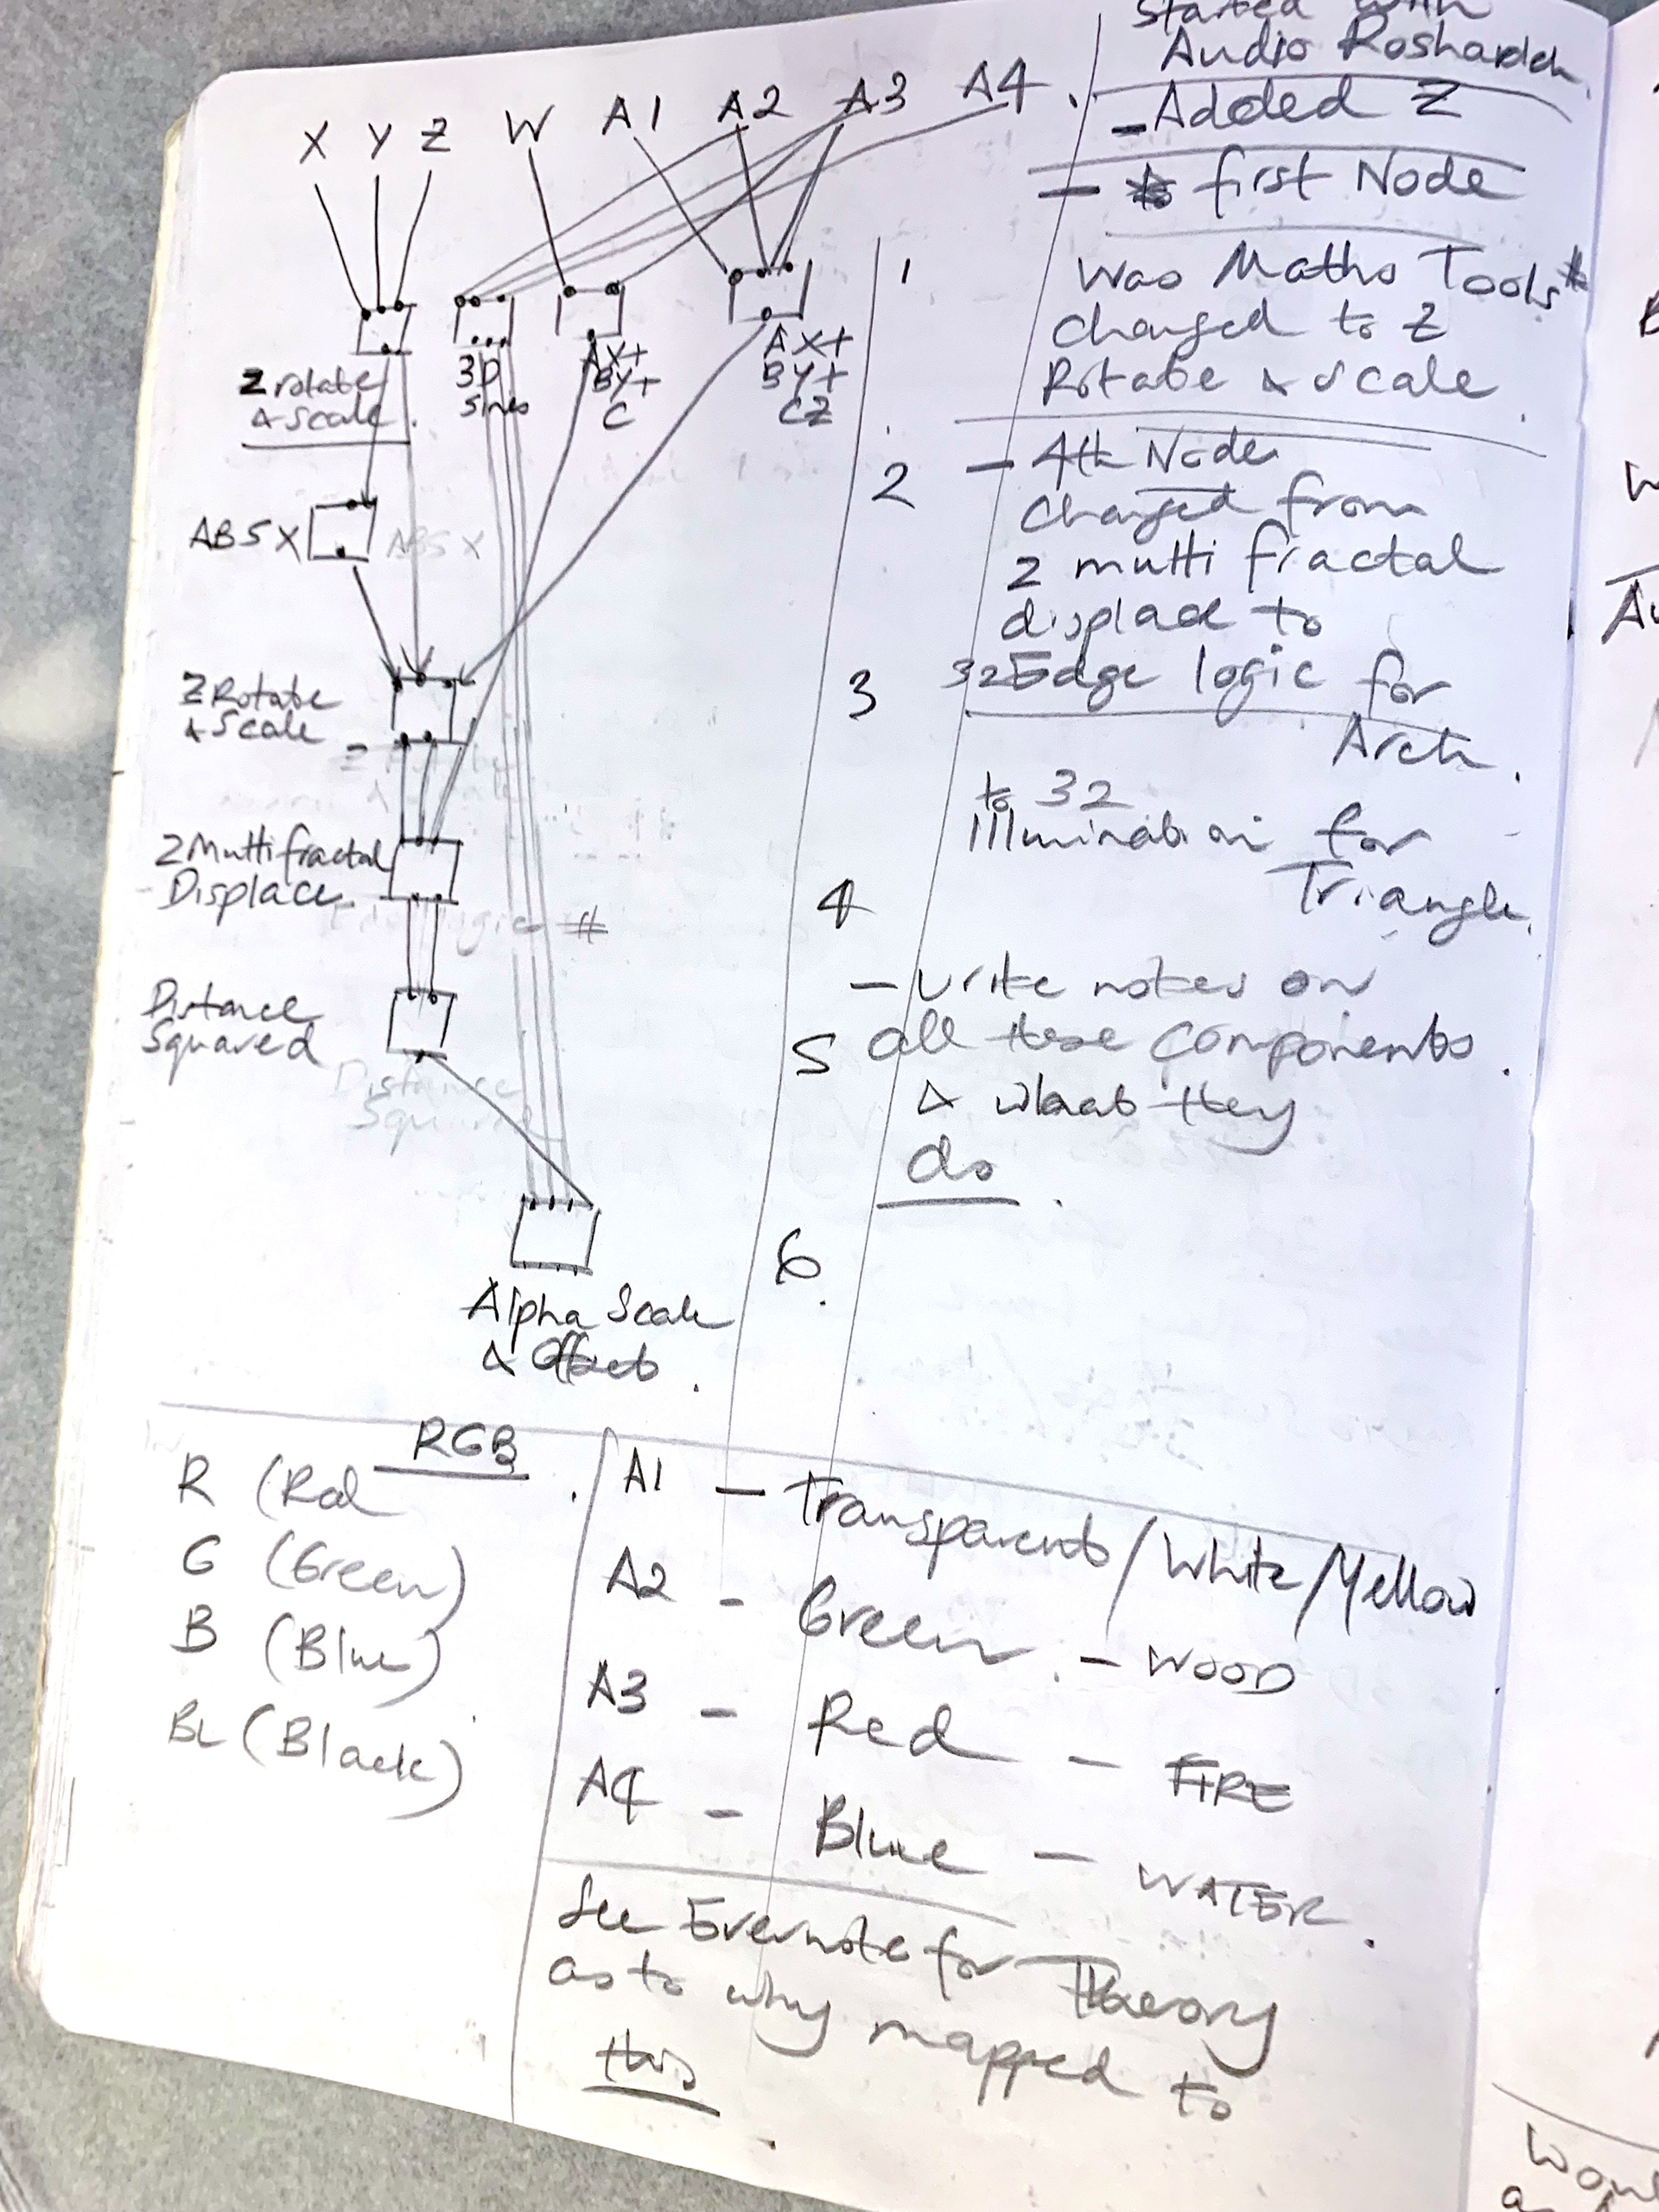 X Y Z W A1 A2 A3 A4
Z rotate
& Scale
3D
Sines
AX+
BY+
C
AX+
BY+
CZ
ABS X
ABS X
Z Rotate
& Scale
2 Multifractal
Displace
Distance
Squared
Distance
Squared
Alpha Scale
& Offset
1
2
3
4
5
6
Started with
Audio
- Added Z
- first Node
Was Maths Tools
changed to Z
Rotate & Scale
- 4th Node
changed from
2 multi fractal
displace to
32 Edge logic for
Arch.
to 32
Illumination for
Triangle.
- write notes on
all these components
& what they
do
RGB
R (Red
G (Green)
B (Blue)
BL (Black)
A1 - Transparent/White/Yellow
A2 - Green - WOOD
A3 - Red - FIRE
A4 - Blue - WATER.
See Evernote for Theory
as to why mapped to
this